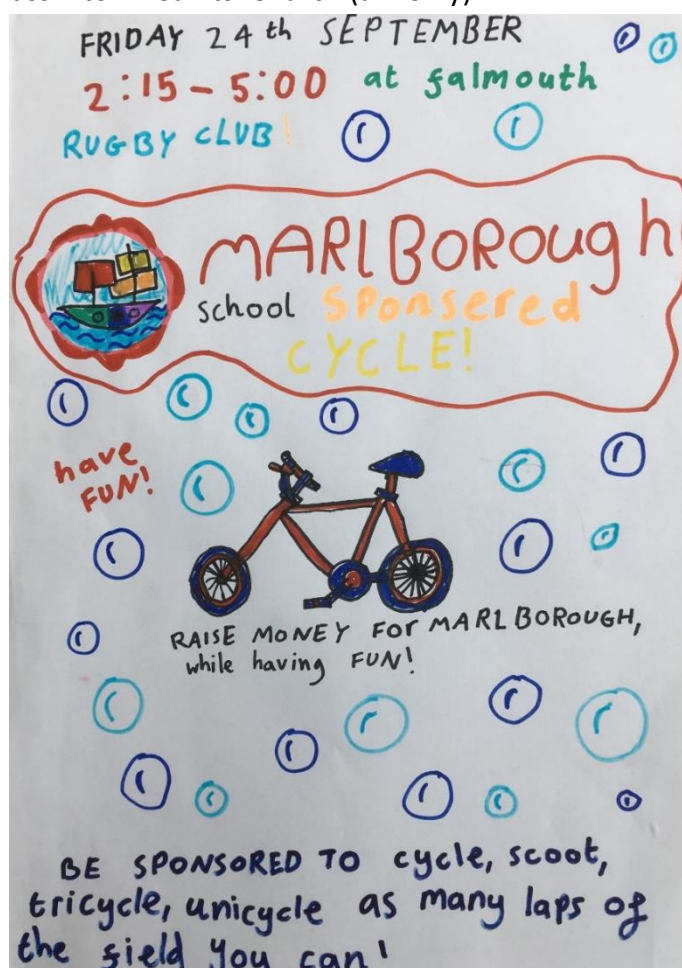 FRIDAY 24th SEPTEMBER
2:15 - 5:00 at falmouth
RUGBY CLUB!
MARLBOROugh
school Sponsered
CYCLE!
have
FUN!
RAISE MONEY FOR MARLBOROUGH,
while having FUN!
BE SPONSORED TO cycle, scoot,
tricycle, unicycle as many laps of
the field you can!